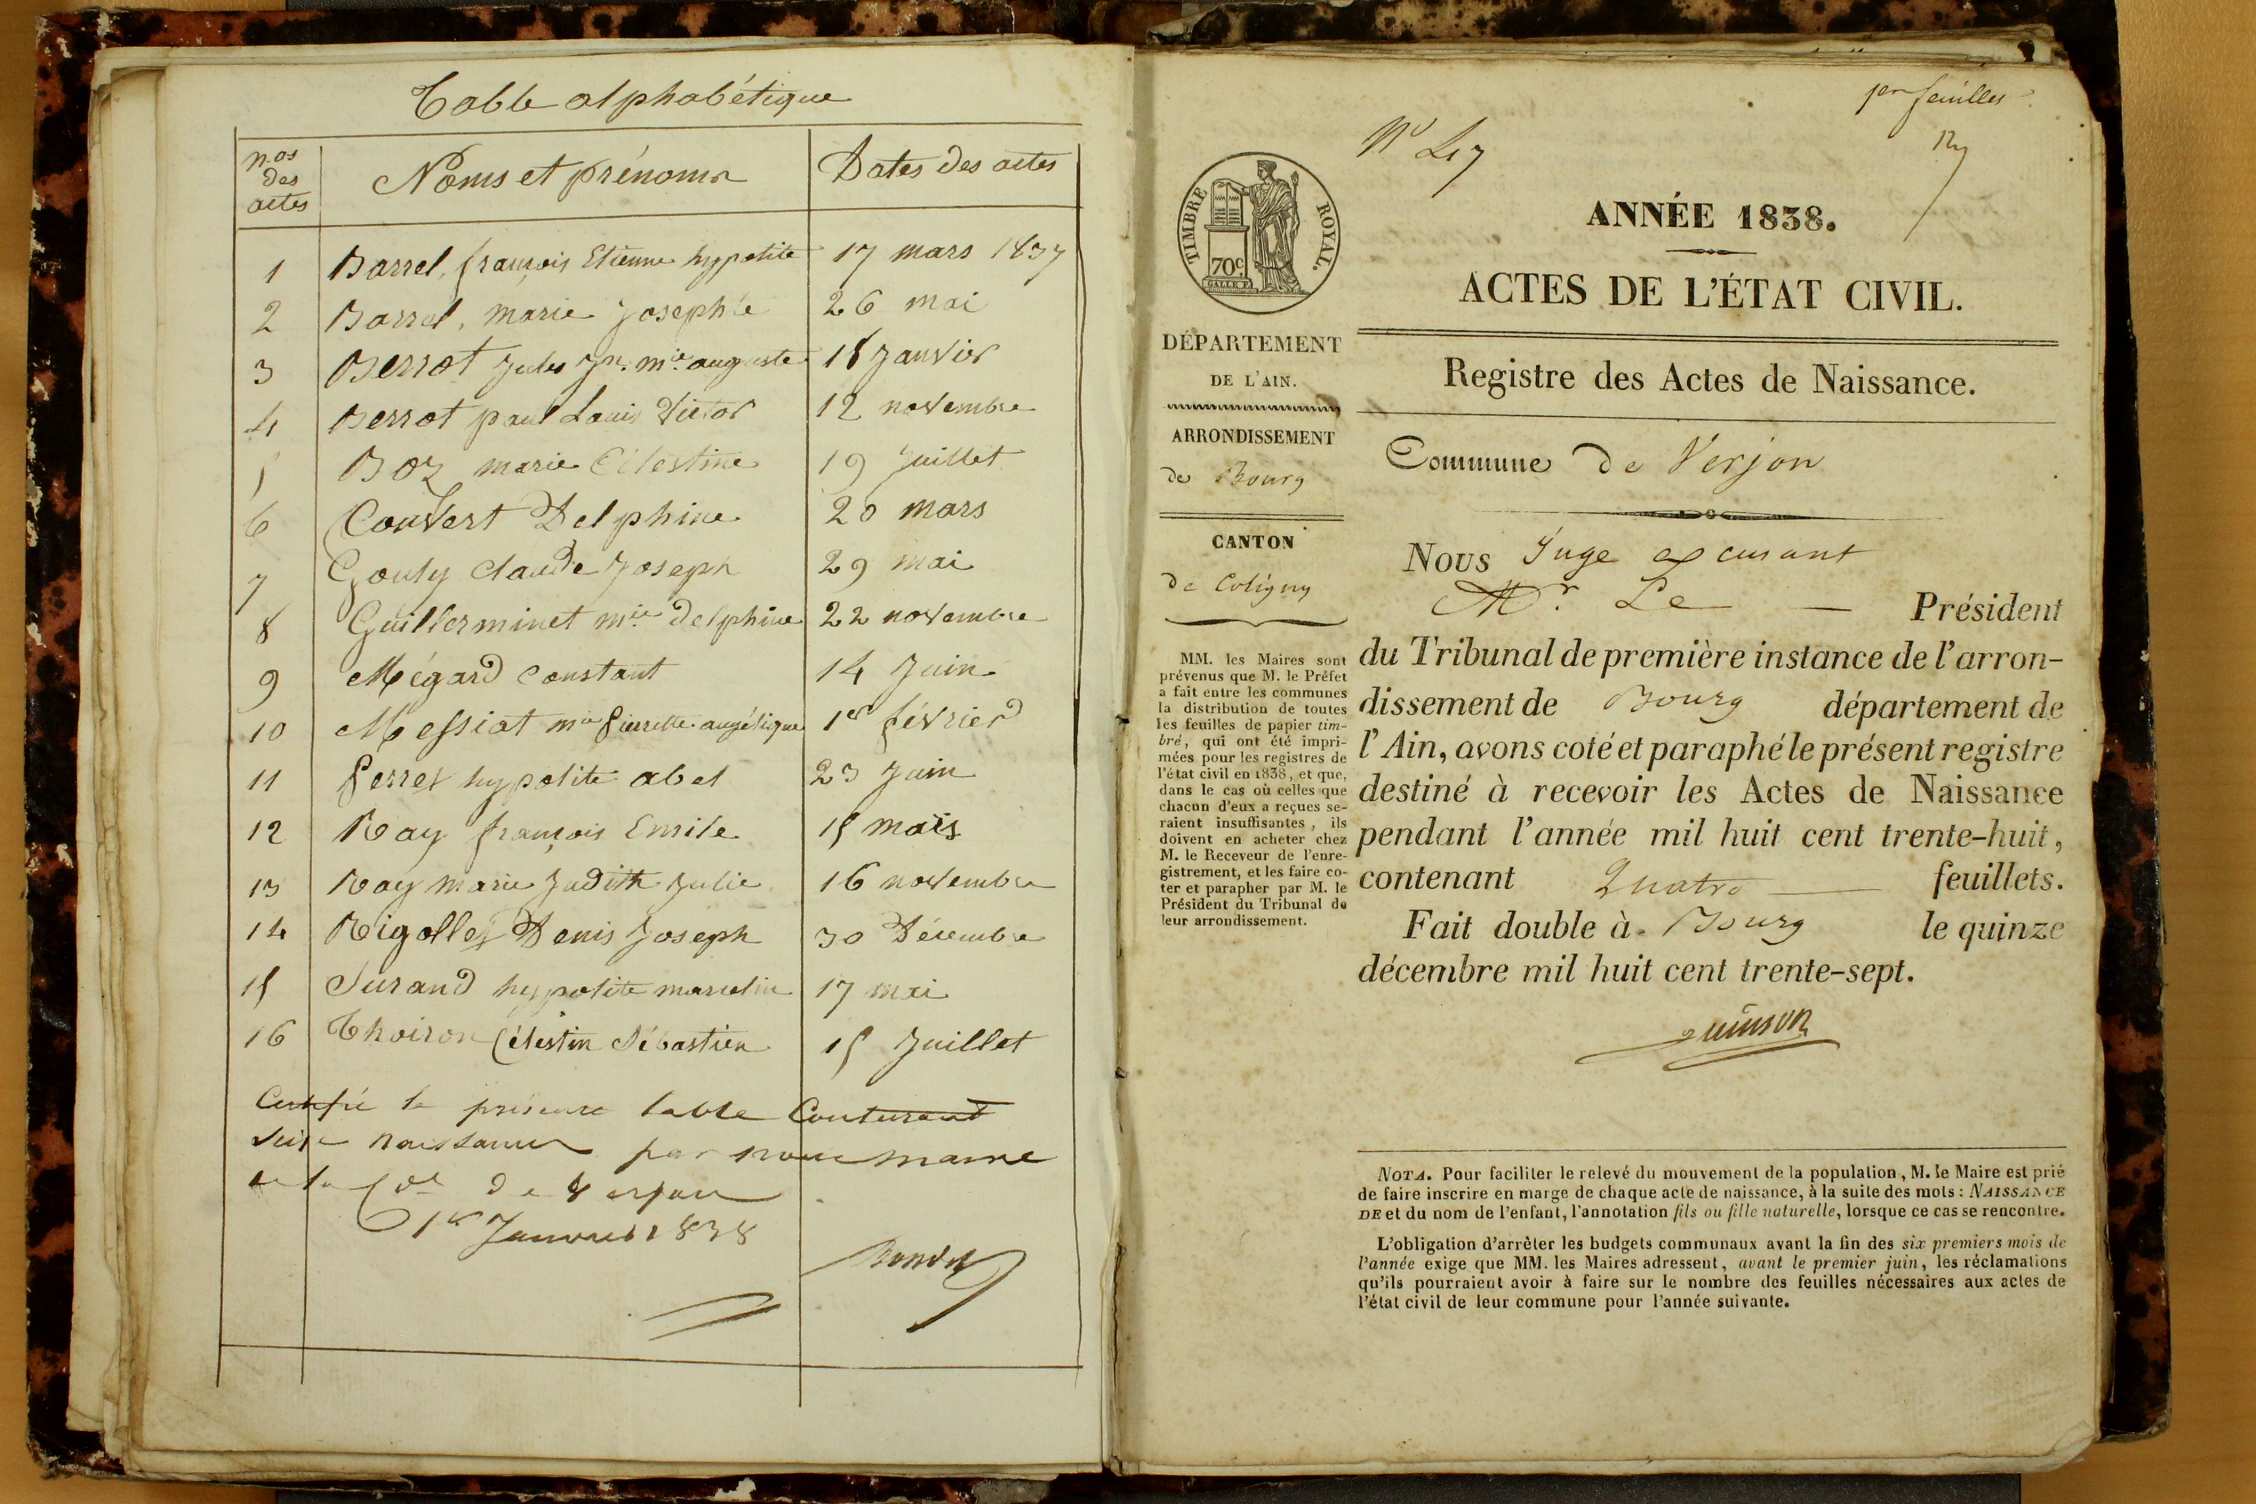 Table alphabétique
nos des actes
Noms et prénoms
Dates des actes
1 Barrel, françois Etienne hypolite 17 mars 1837
2 Barrel, marie Josephte 26 mai
3 Berrot Jules Jn. mie auguste 18 Janvier
4 Berrot paul Louis Victor 12 novembre
5 Boz marie Célestine 19 Juillet
6 Convert Delphine 20 mars
7 Gouly claude Joseph 29 mai
8 Guillerminet mie delphine 22 novembre
9 Mégard constant 14 Juin
10 Messiat mie Pierrette angélique 1er février
11 Perret hypolite abel 23 Juin
12 Ray françois Emile 15 mars
13 Ray marie Judith Julie 16 novembre
14 Rigollet Denis Joseph 30 Décembre
15 Surand hypolite marcelin 17 mai
16 Thoiron Célestin Sébastien 15 Juillet
Certifié la présente table Contenant
seize naissances par nous maire
de la Cne de Verjon
1er Janvier 1838
1er feuillet
ANNÉE 1838.
ACTES DE L'ÉTAT CIVIL.
Registre des Actes de Naissance.
TIMBRE ROYAL.
70c
DÉPARTEMENT
DE L'AIN.
ARRONDISSEMENT
de Bourg
CANTON
de Coligny
MM. les Maires sont
prévenus que M. le Préfet
a fait entre les communes
la distribution de toutes
les feuilles de papier tim-
bré, qui ont été impri-
mées pour les registres de
l'état civil en 1838, et que,
dans le cas où celles que
chacun d'eux a reçues se-
raient insuffisantes, ils
doivent en acheter chez
M. le Receveur de l'enre-
gistrement, et les faire co-
ter et parapher par M. le
Président du Tribunal de
leur arrondissement.
Commune de Verjon
Nous Juge excusant
Mr. Le Président
du Tribunal de première instance de l'arron-
dissement de Bourg département de
l'Ain, avons coté et paraphé le présent registre
destiné à recevoir les Actes de Naissance
pendant l'année mil huit cent trente-huit,
contenant Quatre feuillets.
Fait double à Bourg le quinze
décembre mil huit cent trente-sept.
quinson
NOTA. Pour faciliter le relevé du mouvement de la population, M. le Maire est prié
de faire inscrire en marge de chaque acte de naissance, à la suite des mots : NAISSANCE
DE et du nom de l'enfant, l'annotation fils ou fille naturelle, lorsque ce cas se rencontre.
L'obligation d'arrêter les budgets communaux avant la fin des six premiers mois de
l'année exige que MM. les Maires adressent, avant le premier juin, les réclamations
qu'ils pourraient avoir à faire sur le nombre des feuilles nécessaires aux actes de
l'état civil de leur commune pour l'année suivante.